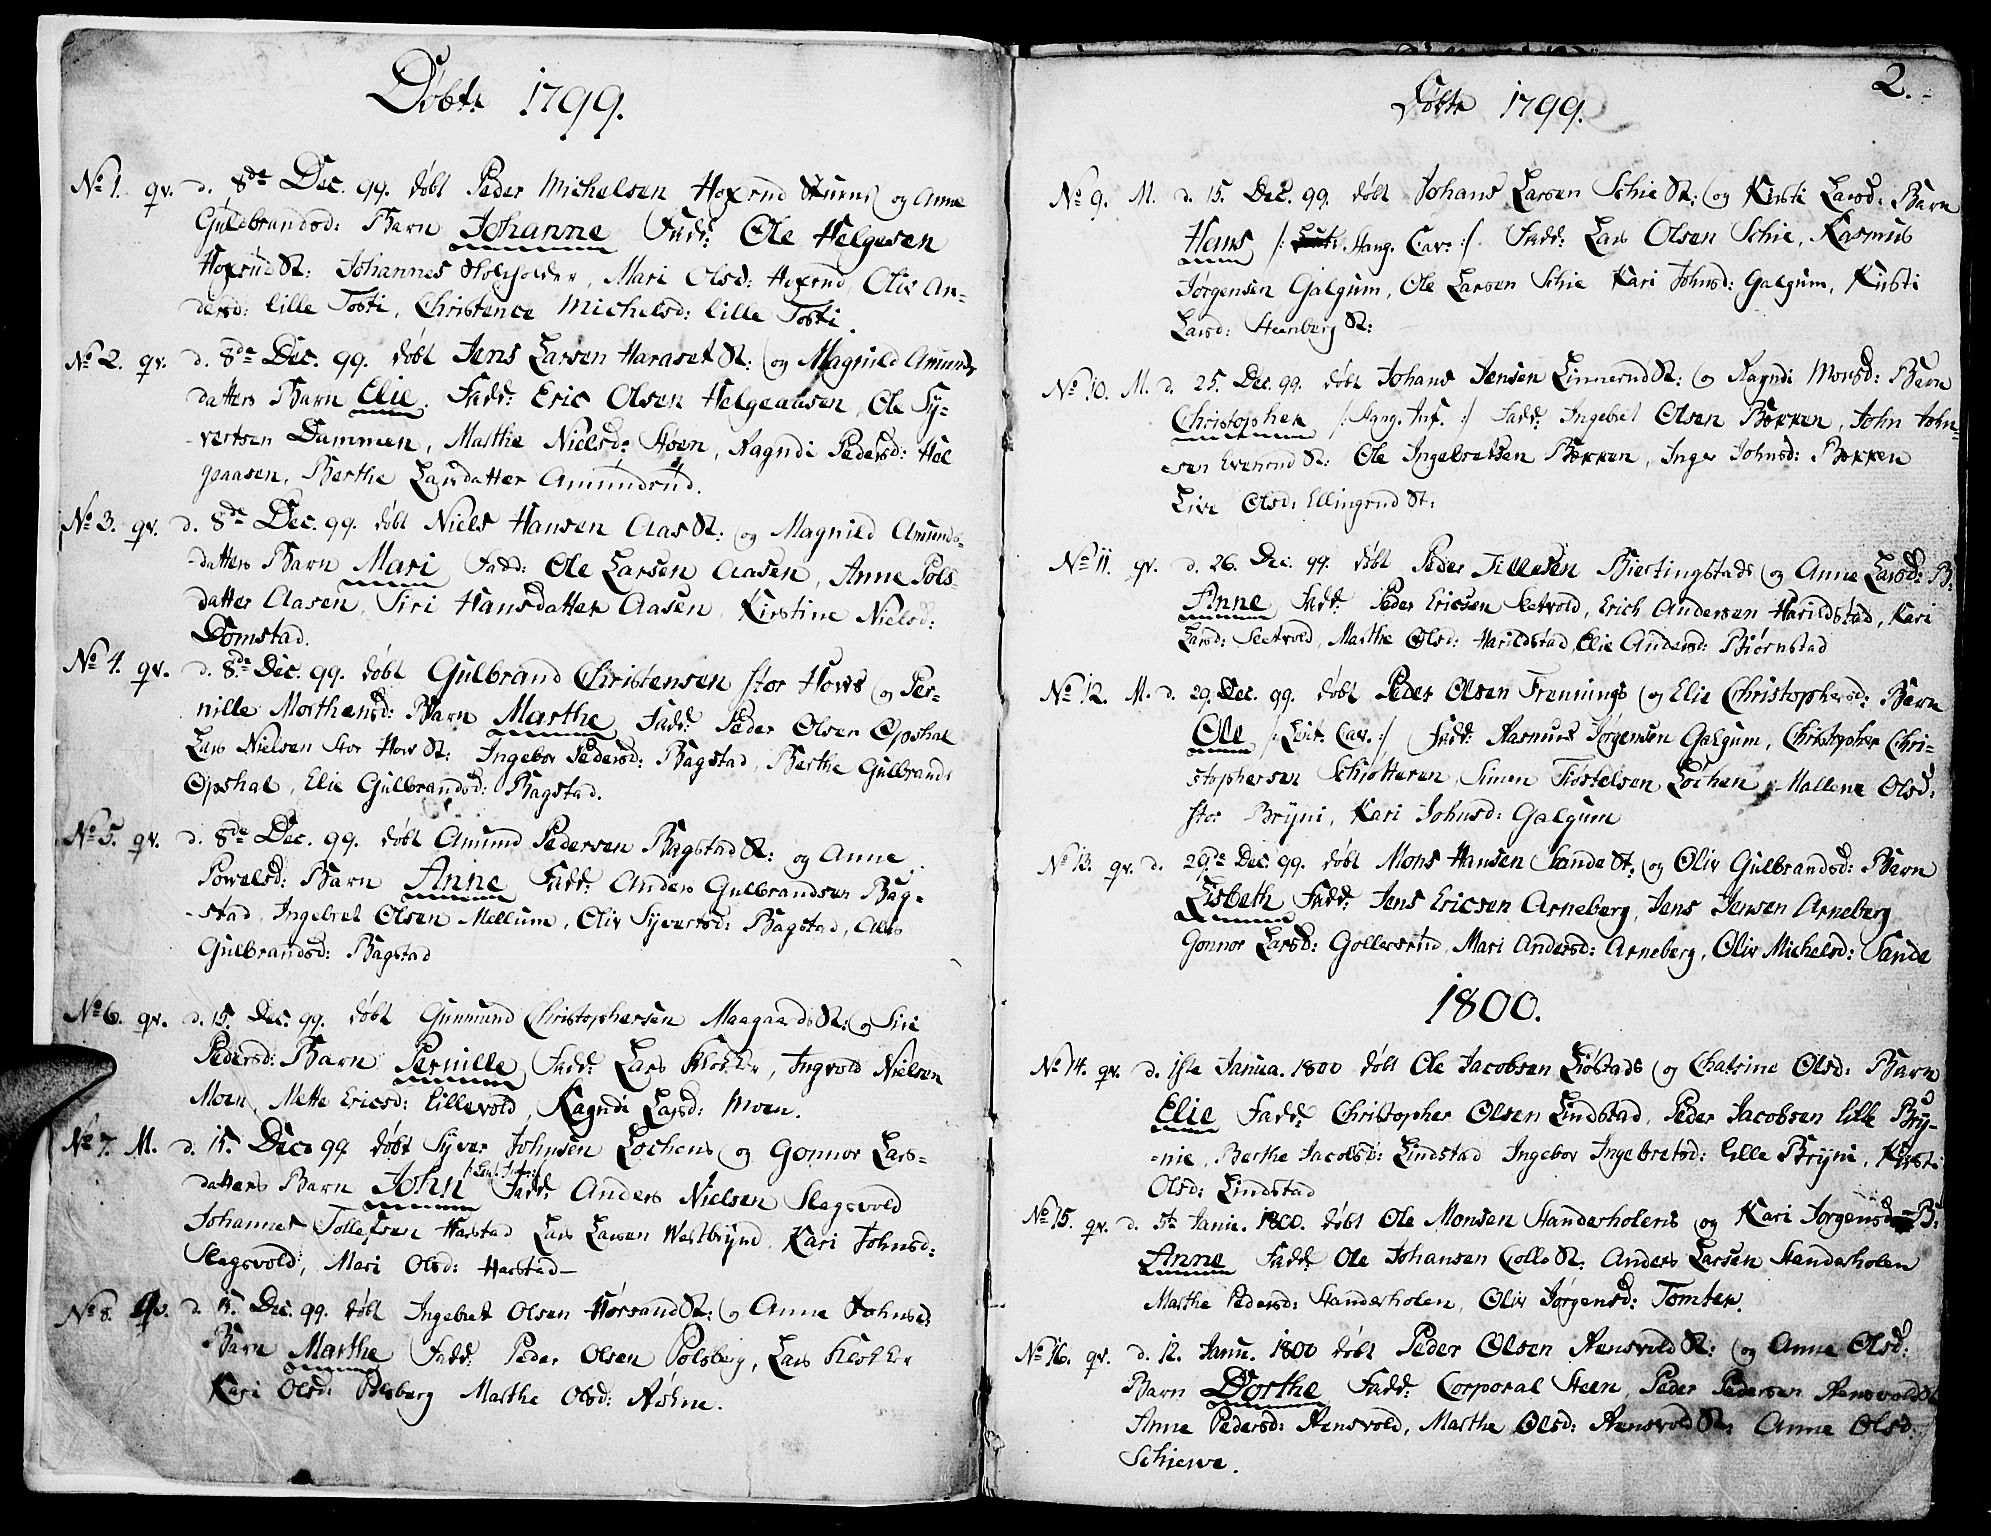 Døbte 1799.
No 1. qv. d. 8de Dec. 99. døbt Peder Michelsen Hoxrud Stuens og Anne
Guldbrandsd: Barn Johanne Fadd: Ole Helgesen
Hoxrud St: Johannes Mari Olsd: Hoxrud, Oliv An-
dersd: lille Tosti, Christence Michelsd: lille Tosti.
No 2. qv. d. 8de Dec. 99. døbt Jens Larsen Haraset St: og Magnild Amunds
datters Barn Elie. Fadd: Eric Olsen Helgeaasen, Ole Sy-
vertsen Dammen, Marthe Nielsd: Moen, Ragndi Pedersd: Hel
geaasen, Berthe Larsdatter Amundrud.
No 3. qv. d. 8de Dec. 99. døbt Niels Hansen Aas St: og Magnild Amunds-
datters Barn Mari Fadd: Ole Larsen Aasen, Anne Pols
datter Aasen, Siri Hansdatter Aasen, Kirstine Nielsd:
Domstad.
No 4. qv. d. 8de Dec. 99. døbt Gulbrand Christensen stor Hovs og Per-
nille Morthensd: Barn Marthe Fadd: Peder Olsen Opshal
Lars Nielsen stor Hov St: Ingebor Pedersd: Bagstad, Berthe Gulbrands
Opshal, Elie Gulbrandsd: Bagstad.
No 5. qv. d. 8de Dec. 99. døbt Amund Pedersen Bagstad St: og Anne
Powelsd: Barn Anne Fadd: Anders Gulbrandsen Bag-
-stad, Ingebret Olsen Mellum, Oliv Syvertsd: Bagstad,
Gulbrandsd: Bagstad
No 6. qv. d. 15. Dec. 99. døbt Gunmund Christophersen Maagaards St: og Siri
Pedersd: Barn Pernille Fadd: Lars Klokker, Ingvold Nielsen
Moen, Mette Ericsd: Lillevold, Ragndi Larsd: Moen.
No 7. M. d. 15. Dec 99. døbt Syver Johnsen Lochens og Gonnor Lars-
datters Barn John Fadd: Anders Nielsen Slagsvold
Johannes Tollefsen Harstad Lars Larsen Westbrynd, Kari Johnsd:
Slagsvold, Mari Olsd: Harstad-
No 8. qv. d. 15. Dec. 99. døbt Ingebret Olsen Horsand St: og Anne Johnsd:
Barn Marthe Fadd: Peder Olsen Polsberg, Lars Klokker
Kari Olsd: Polsberg Marthe Olsd: Røhne.
2.
Døbte 1799.
No 9. M. d. 15. Dec. 99. døbt Johans Larsen Schie St: og Kisti Larsd: Barn
Hans /: Hang. Cav: :/. Fadd: Lars Olsen Schie, Rasmus
Jørgensen Galgum, Ole Larsen Schie Kari Johnsd: Galgum, Kisti
Larsd: Steenberg St:
No 10. M. d. 25. Dec. 99. døbt Johans Jensen Linnerud St: og Ragndi Monsd: Barn
Christopher /: Hang. Inf. :/ Fadd: Ingebret Olsen Bekken, John John-
sen Evenrud St: Ole Ingebretsen Bekken, Inger Johnsd: Bekken
Live Olsd: Ellingrud St:
No 11. qv. d. 26. Dec. 99. døbt Peder Tillesen Biertingstads og Anne Larsd: B:
Anne Fadd: Peder Ericsen Seetvold, Erich Andersen Harildstad, Kari
Larsd: Seetvold, Marthe Olsd: Harildstad, Elie Andersd: Biørnstad
No 12. M. d. 29. Dec. 99. døbt Peder Olsen Frennings og Elie Christophersd: Barn
Ole /: Leut. Cav. :/ Fadd: Rasmus Jørgensen Galgum, Christopher Chri-
stophersen Schjotteren, Simen Tiostelsen Lochen, Mallene Olsd:
stor Bryni, Kari Johnsd: Galgum
No 13. qv. d. 29de Dec. 99. døbt Mons Hansen Sande St. og Oliv Gulbrandsd: Barn
Lisbeth Fadd: Jens Ericsen Arneberg, Jens Jensen Arneberg
Gonnor Larsd: Gollersrud, Mari Andersd: Arneberg, Oliv Michelsd: Sande
1800.
No 14. qv. d. 1ste Janua. 1800 døbt Ole Jacobsen Liøstads og Chatrine Olsd: Barn
Elie Fadd: Christopher Olsen Lindstad, Peder Jacobsen lille Bry-
-nie, Berthe Jacobsd: Lindstad Ingebor Ingebretsd: lille Bryni, Kirsti
Olsd: Lindstad
No 15. qv. d. 5te Janu. 1800. døbt Ole Monsen Standerholens og Kari Jørgensd: B:
Anne Fadd: Ole Johansen Collo St. Anders Larsen Standerholen
Marthe Pedersd: Standerholen, Oliv Jørgensd: Tomter.
No 16. qv. d. 12. Janu. 1800 døbt Peder Olsen Rensvold St: og Anne Olsd:
Barn Dorthe Fadd: Corporal Steen, Peder Pedersen Rensvold St
Anne Pedersd: Rensvold, Marthe Olsd: Rensvold St: Anne Olsd:
Schierve.